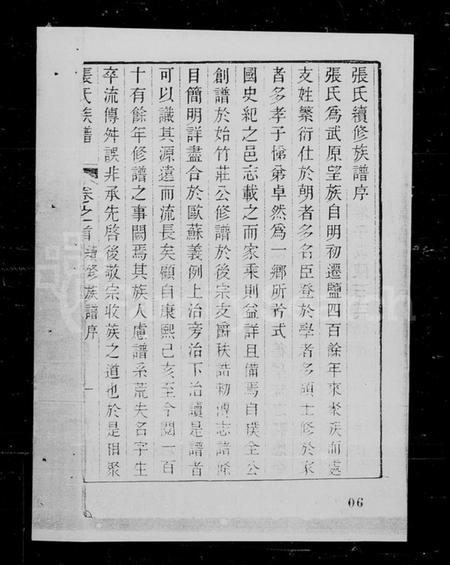 張氏續修族譜序
張氏為武原望族自明初遷鹽四百餘年來聚族而處
支姓繁衍仕於朝者多名臣登於學者多碩士修於家
者多孝子悌弟卓然為一鄉所矜式
國史紀之邑志載之而家乘則益詳且備焉自璞全公
創譜於始竹莊公修譜於後宗支爵秩誥勅傳志諸條
目簡明詳盡合於歐蘇義例上治旁治下治讀是譜者
可以識其源遠而流長矣顧自康熙己亥至今閱一百
十有餘年修譜之事闕焉其族人慮譜系荒失名字生
卒流傳舛誤非承先啓後敬宗收族之道也於是相聚
張氏族譜 卷之首 續修族譜序 一
06